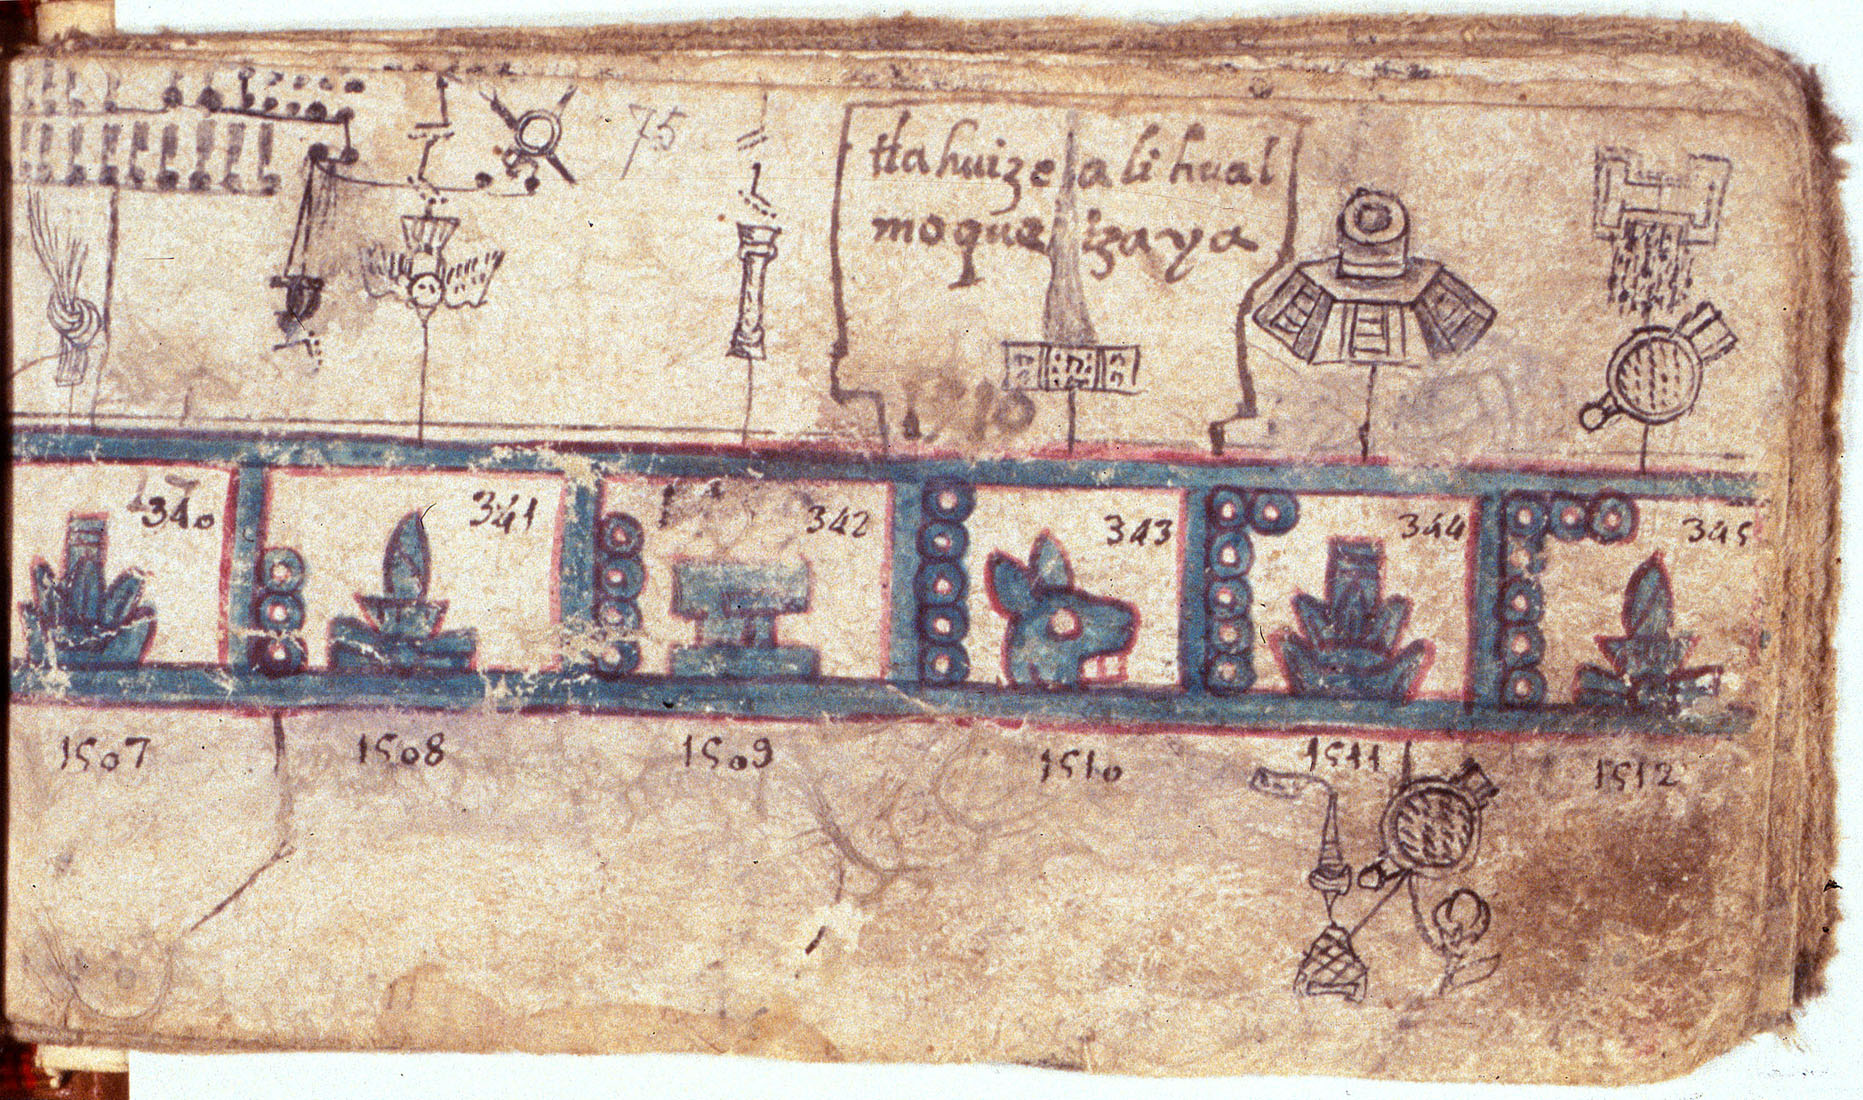 75
ttahuizcalihual
moquetzaya
340 341 342 343 344 345
1507 1508 1509 1510 1511 1512